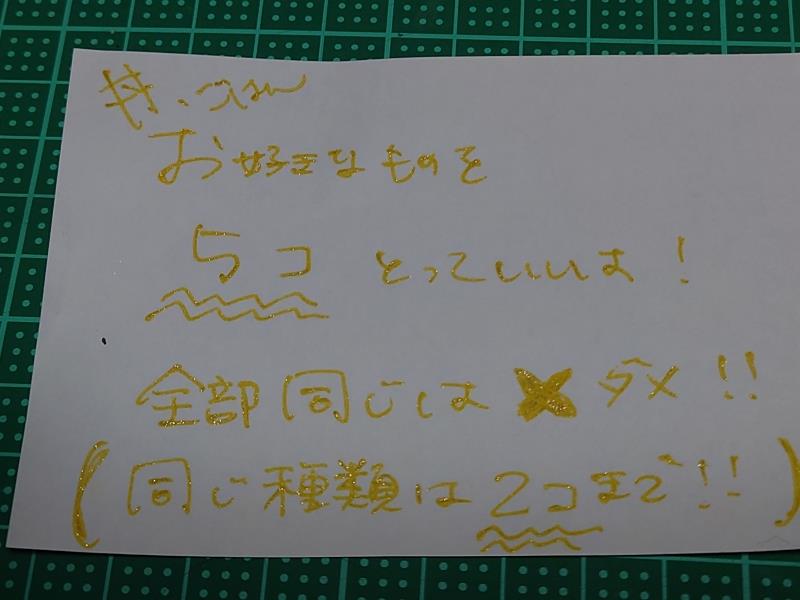 お好きなものを
5コ とっていいよ！
全部同じは✖ダメ!!
(同じ種類は2コまで!!)